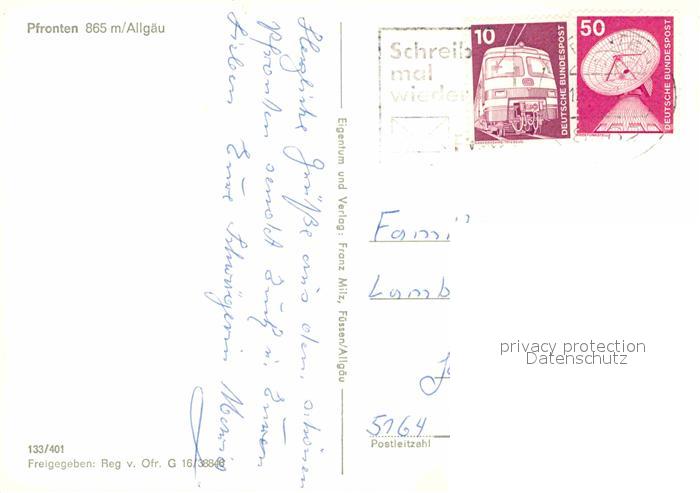 Pfronten 865 m/Allgäu
Herzliche Grüße aus dem schönen
Pfronten sendet Euch u. Euren
Lieben Eure Schwägerin Maria
Eigentum und Verlag: Franz Milz, Füssen/Allgäu
Schreib
mal
wieder
10
DEUTSCHE BUNDESPOST
50
DEUTSCHE BUNDESPOST
Fami
Lamb
privacy protection
Datenschutz
5164
Postleitzahl
133/401
Freigegeben: Reg v. Ofr. G 16/38840